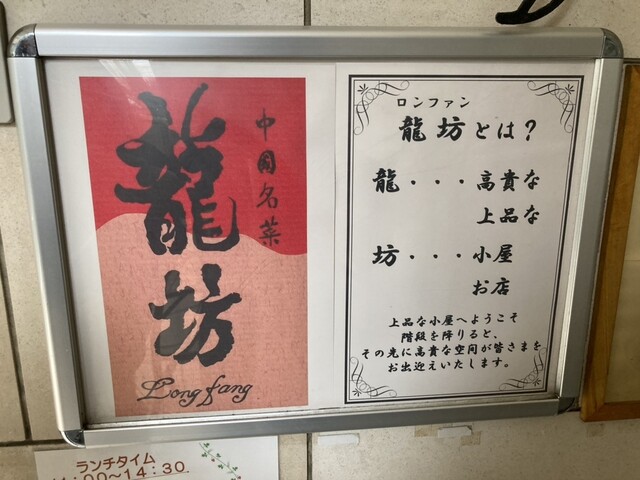 龍坊
中国名菜
Long fang
ロンファン
龍坊とは？
龍・・・高貴な
上品な
坊・・・小屋
お店
上品な小屋へようこそ
階段を降りると、
その光に高貴な空間が皆さまを
お出迎えいたします。
ランチタイム
:00～14:30